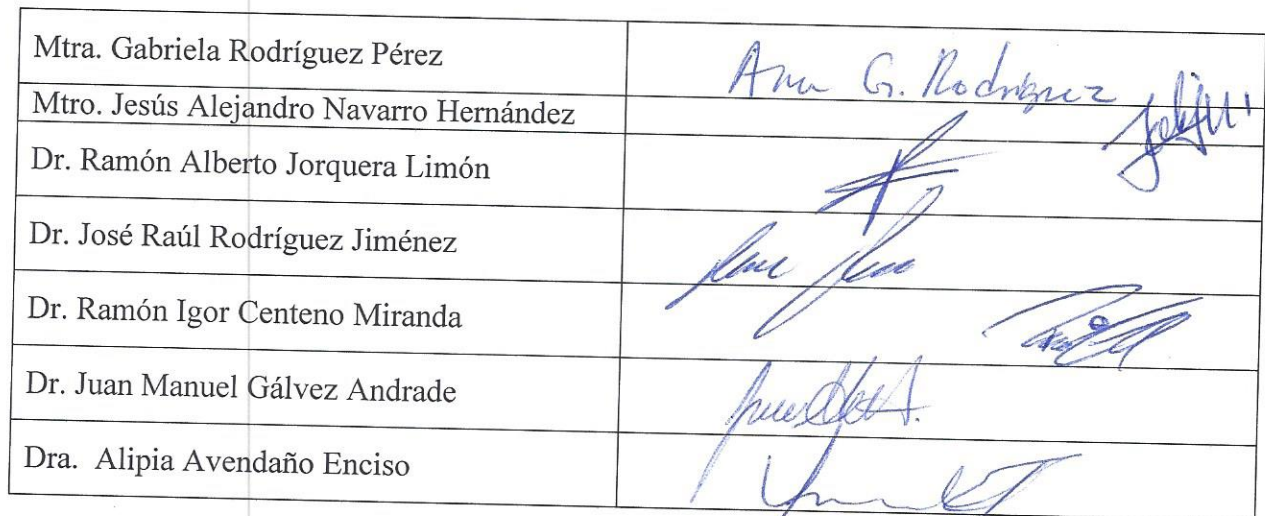 Mtra. Gabriela Rodríguez Pérez
Ana G. Rodríguez
Mtro. Jesús Alejandro Navarro Hernández
Dr. Ramón Alberto Jorquera Limón
Dr. José Raúl Rodríguez Jiménez
Dr. Ramón Igor Centeno Miranda
Dr. Juan Manuel Gálvez Andrade
Dra. Alipia Avendaño Enciso